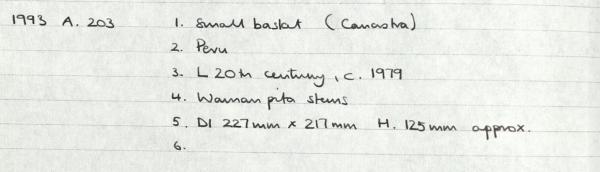 1993 A. 203 1. Small basket (Canasta)
2. Peru
3. L 20th century, c. 1979
4. Waman pita stems
5. DI 227mm x 217mm H. 125mm approx.
6.